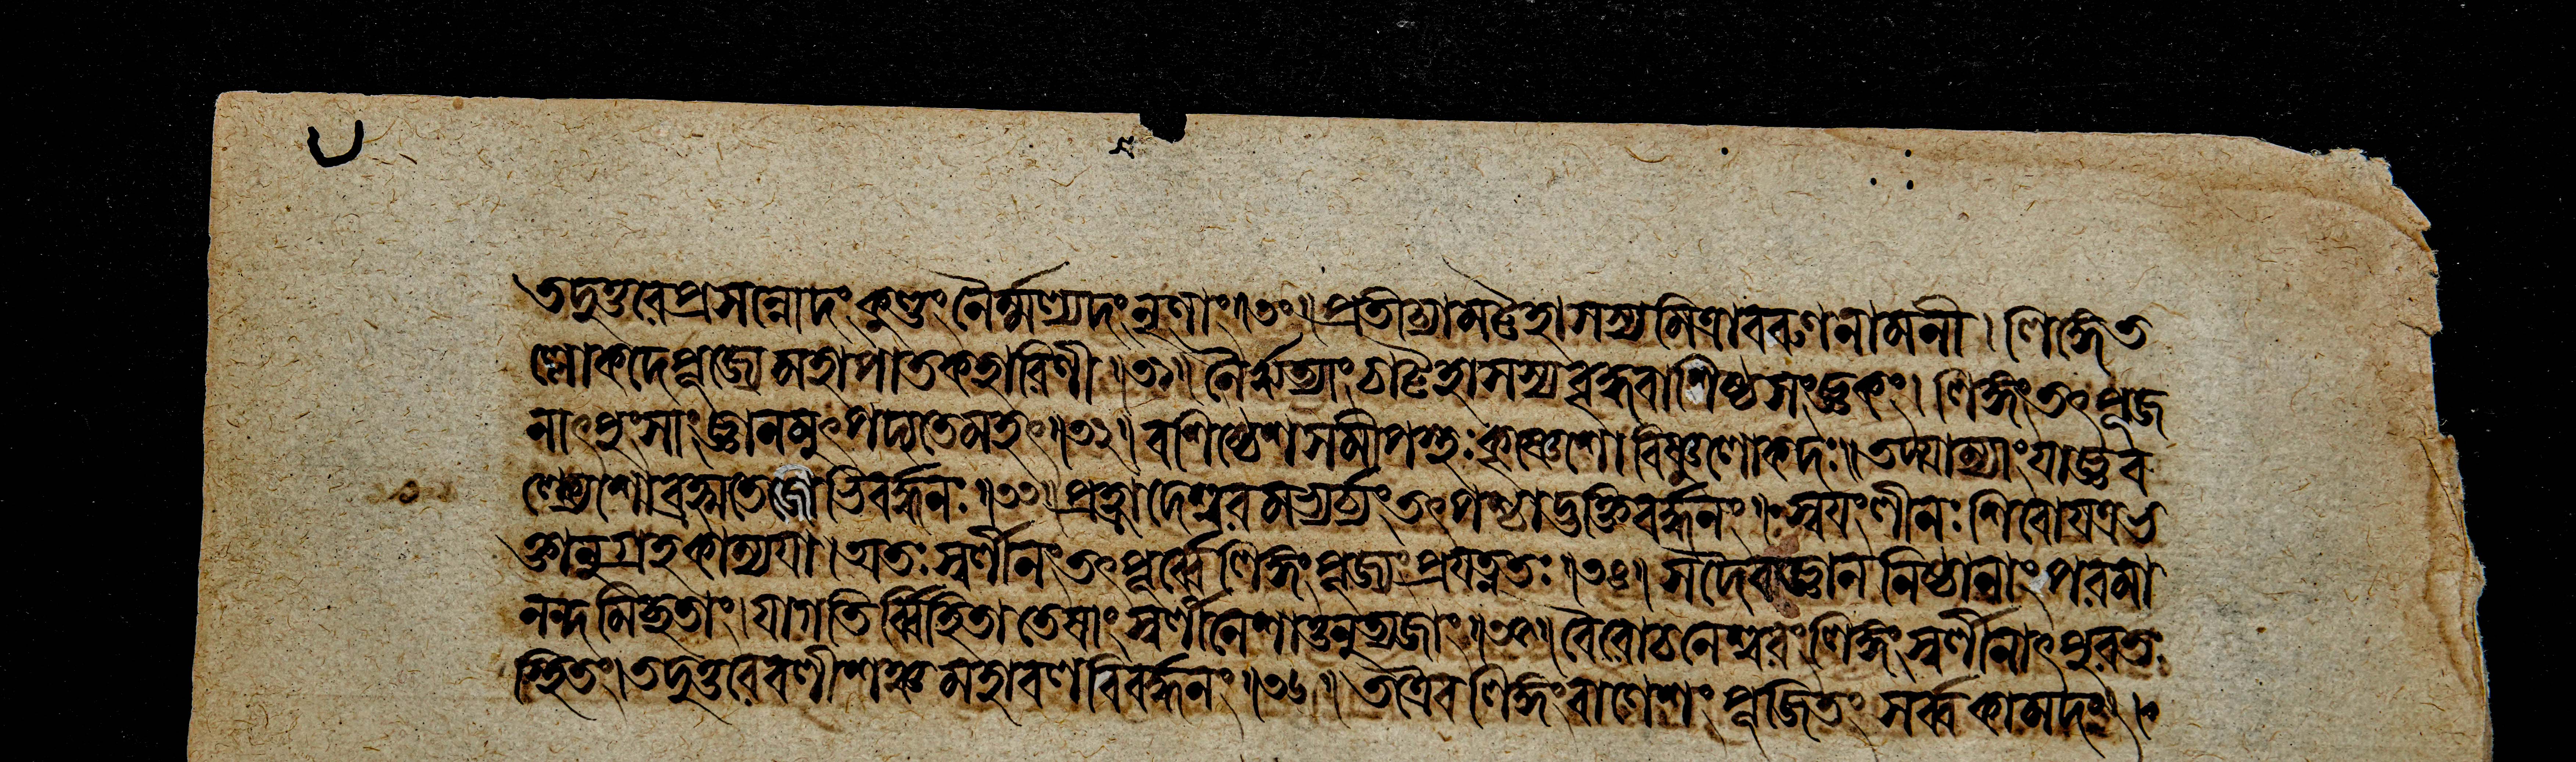 তদুত্তরে প্রসন্নোদং কুণ্ডং নৈর্ম্মল্যদং নৃণাং॥৩০॥ প্রতীচ্যামট্টহাসস্য মিত্রাবরুণনামনী। লিঙ্গে ত
ল্লোকদে পূজ্যে মহাপাতকহারিণী॥৩১॥ নৈর্ঋত্যাং চাট্টহাসস্য বৃদ্ধবাশিষ্ঠসংজ্ঞকং। লিঙ্গং তৎপূজ
নাৎ পুংসাং জ্ঞানমুৎপদ্যতে মহৎ॥৩২॥ বশিষ্ঠেশসমীপস্থঃ কৃষ্ণেশো বিষ্ণুলোকদঃ॥ তদ্যাম্যাং যাজ্ঞব
ল্ক্যেশো ব্রহ্মতেজোভিবর্দ্ধনঃ॥৩৩॥ প্রহ্লাদেশ্বরমভ্যর্চ্য তৎপশ্চাদ্ভক্তিবর্দ্ধনং॥ স্বয়ংলীনঃ শিবো যত্র ভ
ক্তানুগ্রহকাম্যয়া। অতঃ স্বর্লীনং তৎপূর্ব্বে লিঙ্গং পূজ্যং প্রযত্নতঃ॥৩৪॥ সদৈব জ্ঞাননিষ্ঠানাং পরমা
নন্দমিচ্ছতাং। যা গতির্বিহিতা তেষাং স্বর্লীনে সা তনুত্যজাং॥৩৫॥ বৈরোচনেশ্বরং লিঙ্গং স্বর্লীনাৎ পুরতঃ
স্থিতং। তদুত্তরে বলীশঞ্চ মহাবলবিবর্দ্ধনং॥৩৬॥ তত্রৈব লিঙ্গং বাণেশং পূজিতং সর্ব্বকামদং॥